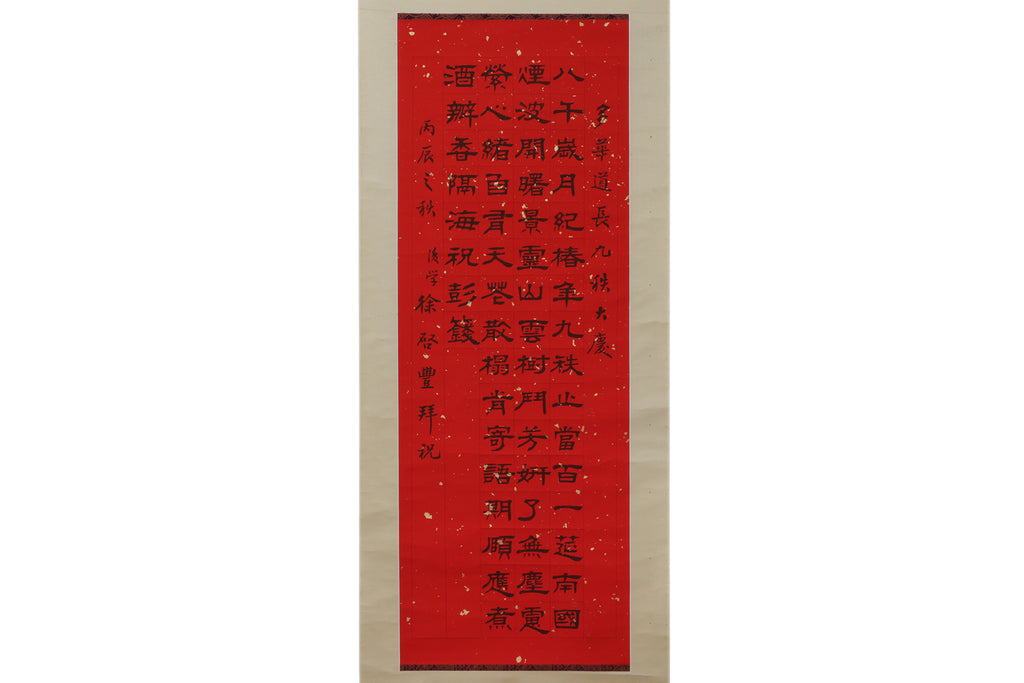 多華道長九秩大慶
八千歲月紀椿年九秩止當百一莚南國
煙波開曙景靈山雲樹鬥芳妍了無塵慮
縈心緒自有天花散榻前寄語期頤應煮
酒瓣香隔海祝彭籛
丙辰之秋 後学徐啓豐拜祝